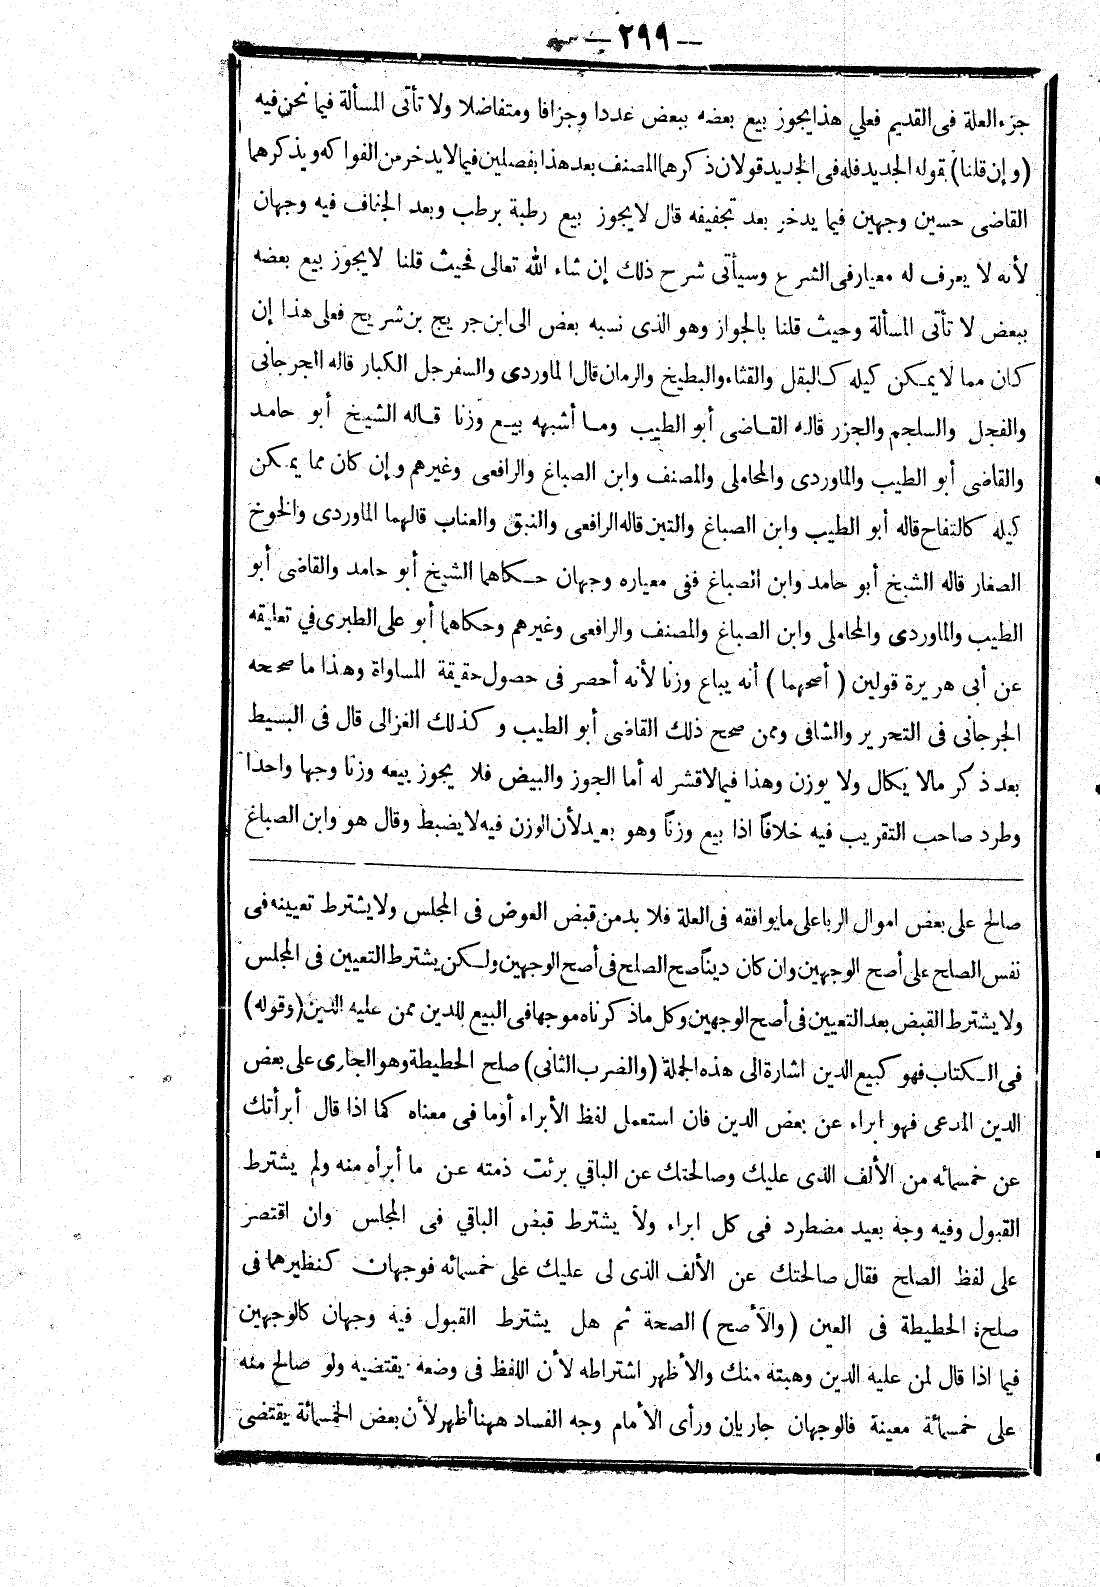 — ٢٩٩ —
جزء العلة فى القديم فعلي هذا يجوز بيع بعضه ببعض عددا وجزافا ومتفاضلا ولا تأتى المسألة فيما نحن فيه
(وإن قلنا) بقوله الجديد فله فى الجديد قولان ذكرهما المصنف بعد هذا بفصلين فيما لا يدخر من الفواكه ويذكرهما
القاضى حسين وجهين فيما يدخر بعد تجفيفه قال لا يجوز بيع رطبة برطب وبعد الجفاف فيه وجهان
لأنه لا يعرف له معيار فى الشرع وسيأتى شرح ذلك إن شاء الله تعالى فحيث قلنا لا يجوز بيع بعضه
ببعض لا تأتى المسألة وحيث قلنا بالجواز وهو الذى نسبه بعض الى ابن جريج بن شريح فعلى هذا إن
كان مما لا يمكن كيله كالبقل والقثاء والبطيخ والرمان قال الماوردى والسفرجل الكبار قاله الجرجانى
والفجل والسلجم والجزر قاله القاضى أبو الطيب وما أشبهه بيع وزنا قاله الشيخ أبو حامد
والقاضى أبو الطيب والماوردى والمحاملى والمصنف وابن الصباغ والرافعى وغيرهم وإن كان مما يمكن
كيله كالتفاح قاله أبو الطيب وابن الصباغ والتين قاله الرافعى والنبق والعناب قالهما الماوردى والخوخ
الصغار قاله الشيخ أبو حامد وابن الصباغ ففى معياره وجهان حكاهما الشيخ أبو حامد والقاضى أبو
الطيب والماوردى والمحاملى وابن الصباغ والمصنف والرافعى وغيرهم وحكاهما أبو على الطبرى في تعليقه
عن أبى هريرة قولين (أصحهما) أنه يباع وزنا لأنه أحصر فى حصول حقيقة المساواة وهذا ما صححه
الجرجانى فى التحرير والشافى وممن صحح ذلك القاضى أبو الطيب وكذلك الغزالى قال فى البسيط
بعد ذكر مالا يكال ولا يوزن وهذا فيما لا قشر له أما الجوز والبيض فلا يجوز بيعه وزنا وجها واحدا
وطرد صاحب التقريب فيه خلافاً اذا بيع وزناً وهو بعيد لأن الوزن فيه لا يضبط وقال هو وابن الصباغ
صالح على بعض اموال الربا على ما يوافقه فى العلة فلا بد من قبض العوض فى المجلس ولا يشترط تعيينه فى
نفس الصلح على أصح الوجهين وان كان ديناً صح الصلح فى أصح الوجهين ولكن يشترط التعيين فى المجلس
ولا يشترط القبض بعد التعيين فى أصح الوجهين وكل ما ذكرناه موجها فى البيع للدين ممن عليه الدين (وقوله)
فى الكتاب فهو كبيع الدين اشارة الى هذه الجملة (والضرب الثانى) صلح الحطيطة وهو الجارى على بعض
الدين المدعى فهو ابراء عن بعض الدين فان استعمل لفظ الأبراء أو ما فى معناه كما اذا قال أبرأتك
عن خمسمائه من الألف الذى عليك وصالحتك عن الباقي برئت ذمته عن ما أبرأه منه ولم يشترط
القبول وفيه وجه بعيد مضطرد فى كل ابراء ولا يشترط قبض الباقي فى المجلس وان اقتصر
على لفظ الصلح فقال صالحتك عن الألف الذى لى عليك على خمسمائه فوجهان كنظيرهما فى
صلح الحطيطة فى العين (والأصح) الصحة ثم هل يشترط القبول فيه وجهان كالوجهين
فيما اذا قال لمن عليه الدين وهبته منك والأظهر اشتراطه لأن اللفظ فى وضعه يقتضيه ولو صالح منه
على خمسمائة معينة فالوجهان جاريان ورأى الأمام وجه الفساد ههنا أظهر لأن بعض الخمسمائة يقتضى